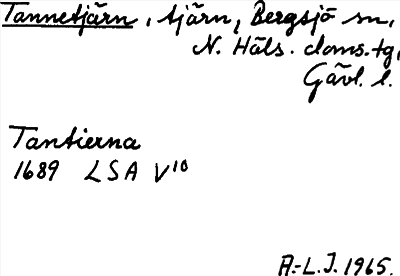 Tannetjärn, tjärn, Bergsjö sn,
N. Häls. doms.tg,
Gävl. l.
Tantierna
1689 LSA V¹⁰
A.-L.J. 1965.